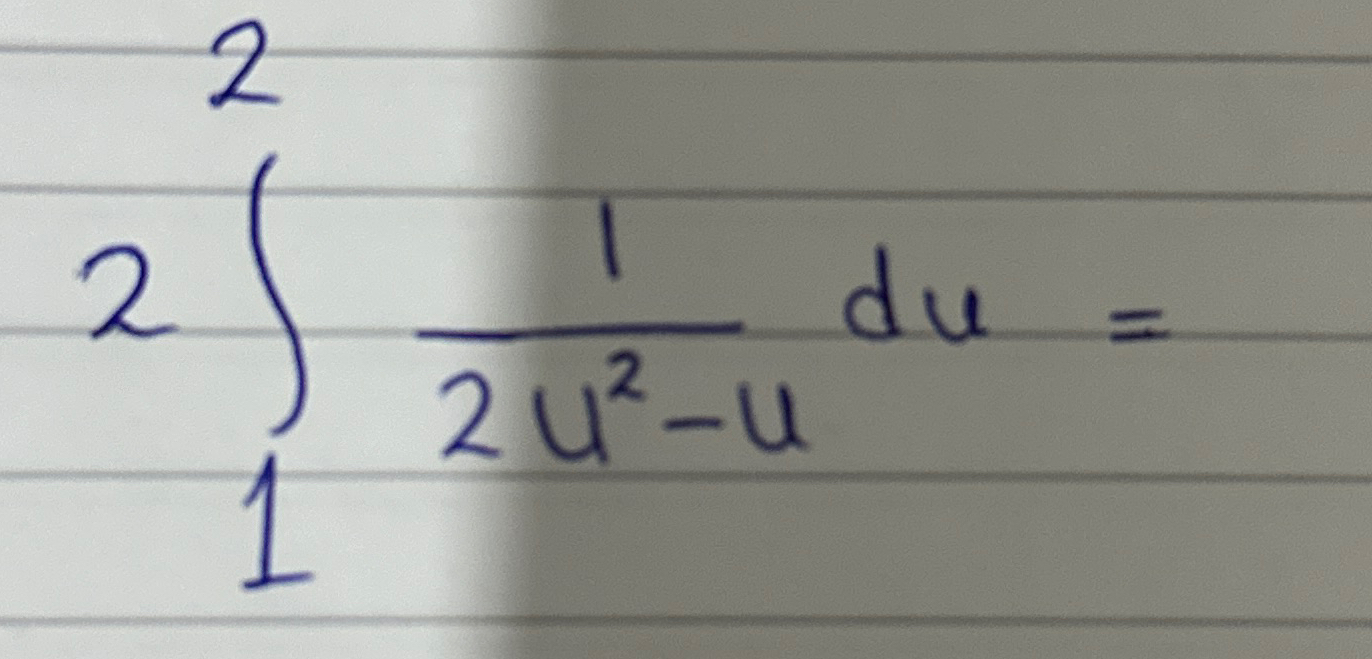 2 ∫₁² 1/(2u² − u) du =